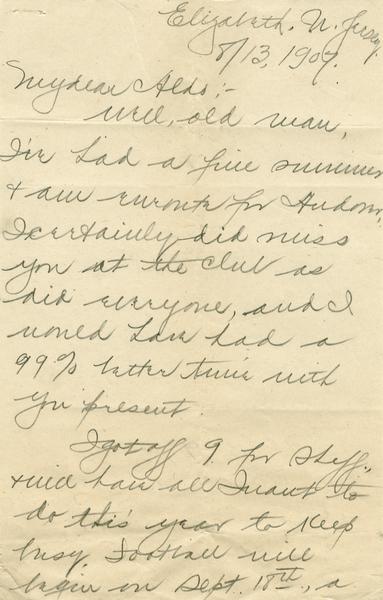 Elizabeth, N. Jersey.
8/13, 1907.
My dear Aldo;-
Well, old man,
I've had a fine summer
& am enroute for Hudson,
I certainly did miss
you at the club as
did everyone, and I
would have had a
99% better time with
you present.
I got off 9 for Sheff.,
& will have all I want to
do this year to keep
busy. Football will
begin on Sept. 18th, a